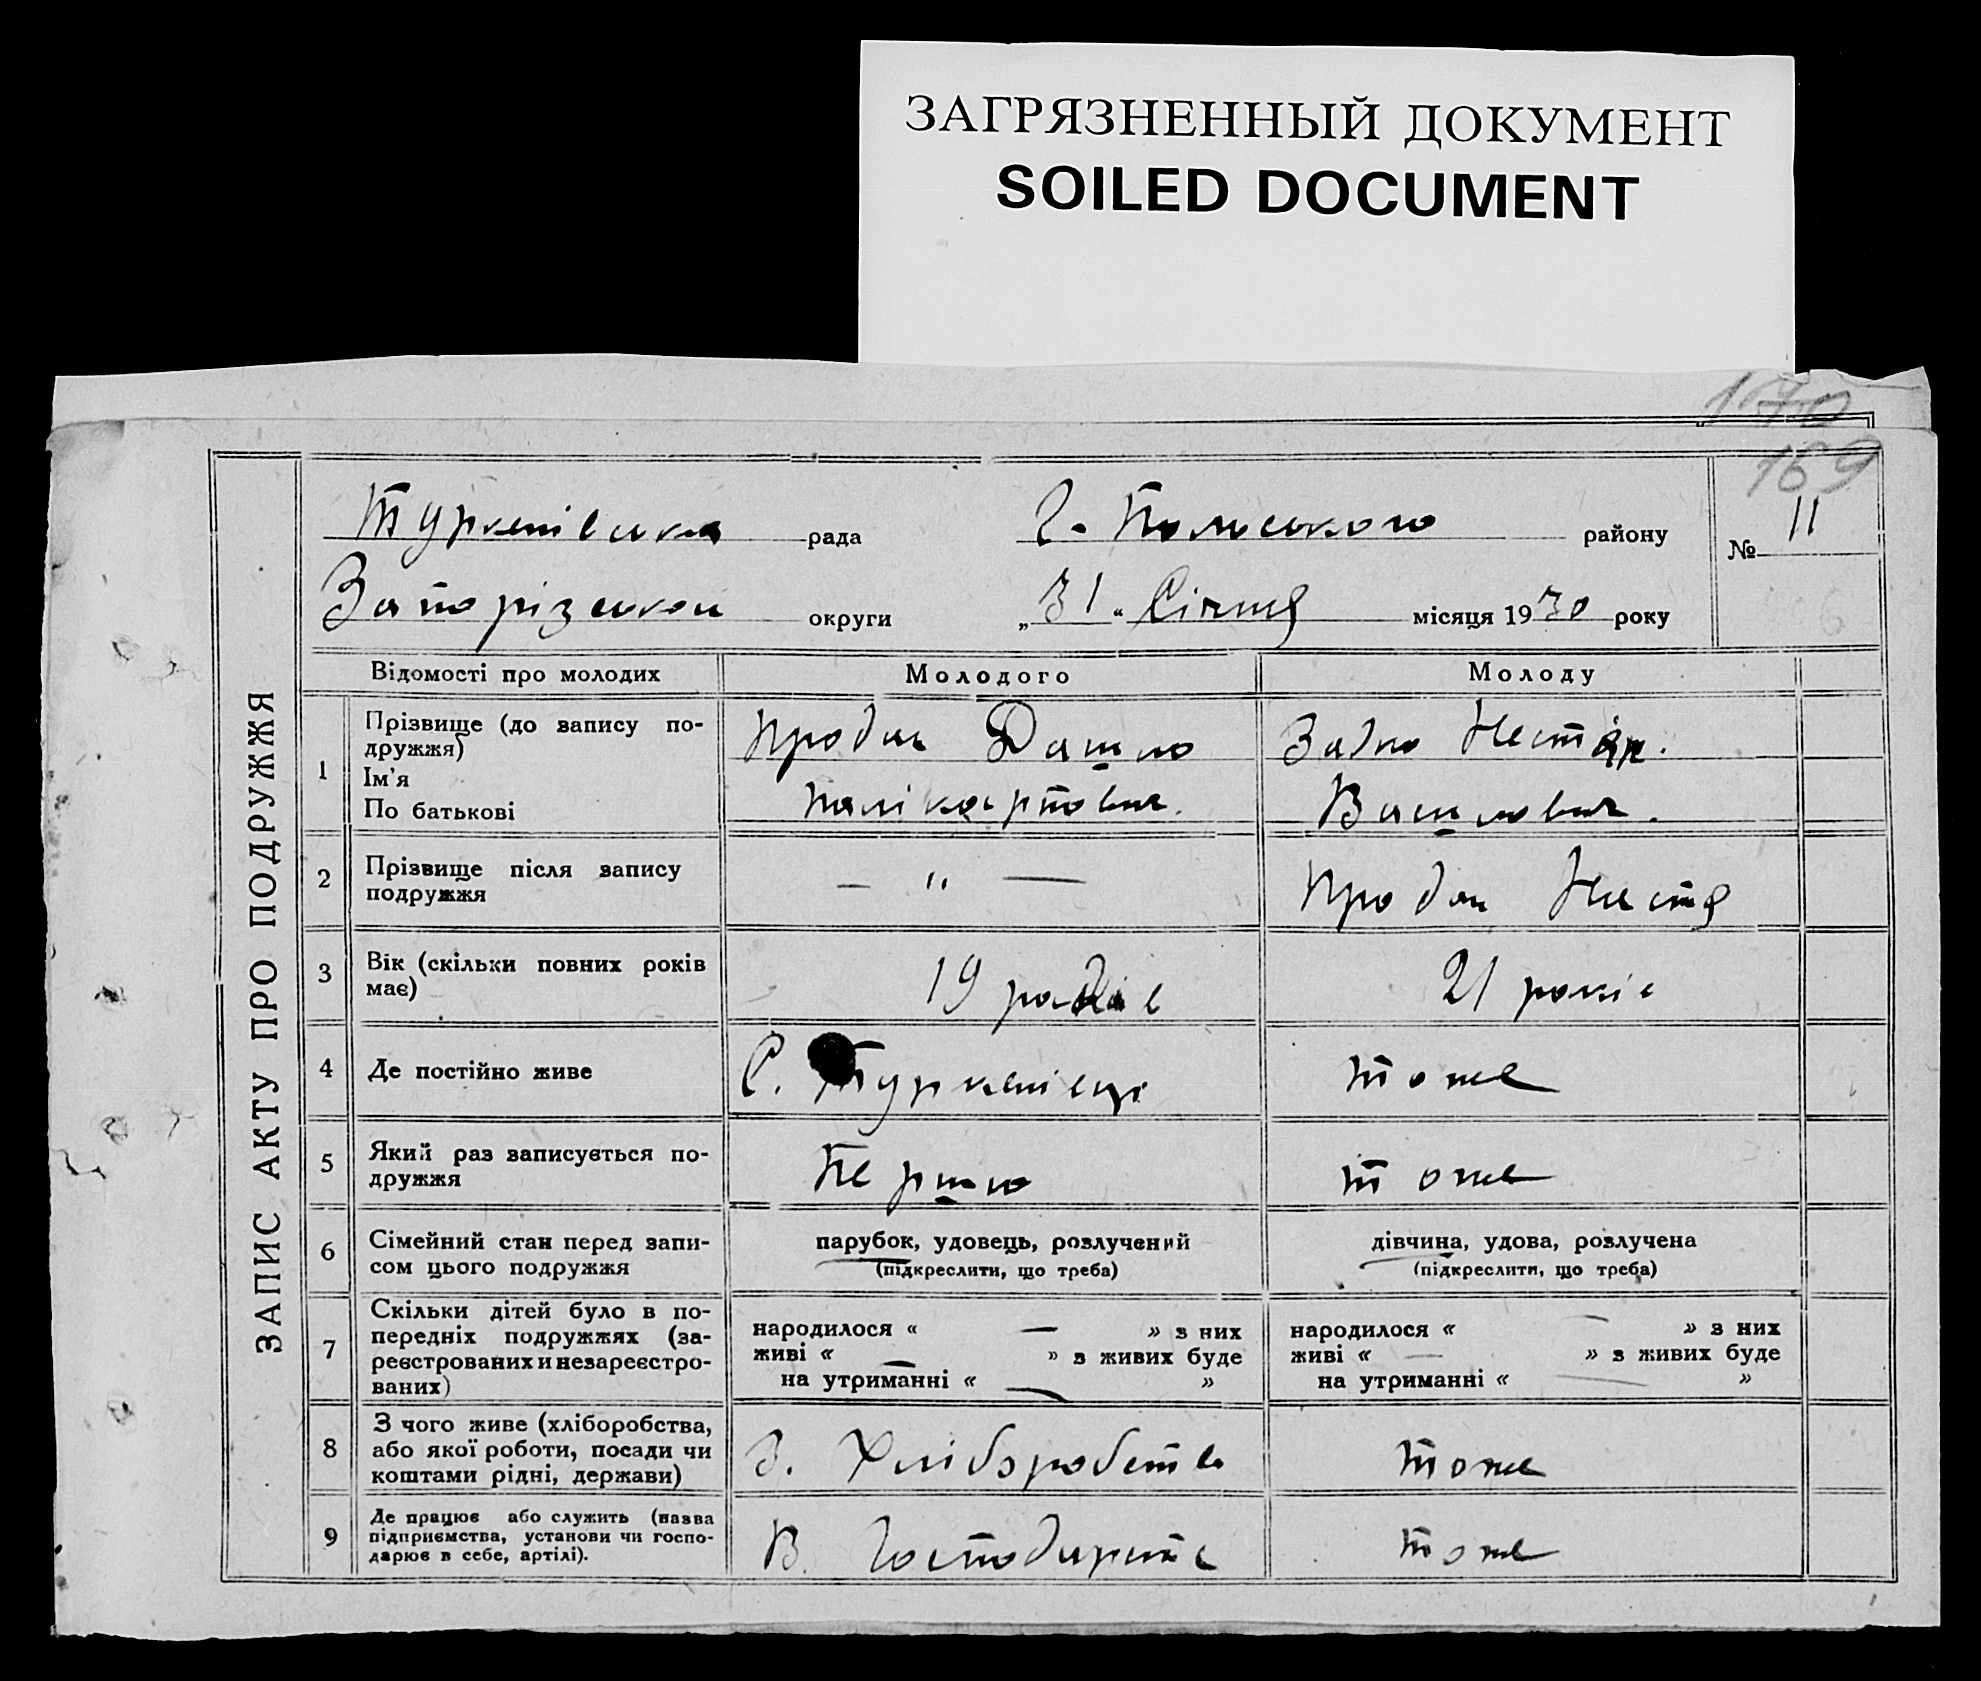 ЗАГРЯЗНЕННЫЙ ДОКУМЕНТ
SOILED DOCUMENT
170
169
ЗАПИС АКТУ ПРО ПОДРУЖЖЯ
Туркенівська рада Г. Польського району № 11
Запорізькой округи „31“ Січня місяця 1930 року
Відомості про молодих Молодого Молоду
1 Прізвище (до запису по-
дружжя)
Ім'я
По батькові
Продан
Полікарпович.
Василович.
2 Прізвище після запису
подружжя
— " —
Продан Настя
3 Вік (скільки повних років
має)
19 років
21 років
4 Де постійно живе
С. Туркенівці
тоже
5 Який раз записується по-
дружжя
Першо
тоже
6 Сімейний стан перед запи-
сом цього подружжя
парубок, удовець, розлучений
(підкреслити, що треба)
дівчина, удова, розлучена
(підкреслити, що треба)
7 Скільки дітей було в по-
передніх подружжях (за-
реєстрованих и незареєстро-
ваних)
народилося « — » з них
живі « — » з живих буде
на утриманні « — »
народилося « — » з них
живі « — » з живих буде
на утриманні « — »
8 З чого живе (хліборобства,
або якої роботи, посади чи
коштами рідні, держави)
З. Хліборобства
тоже
9 Де працює або служить (назва
підприємства, установи чи госпо-
дарює в себе, артілі).
В. Господарстві
тоже